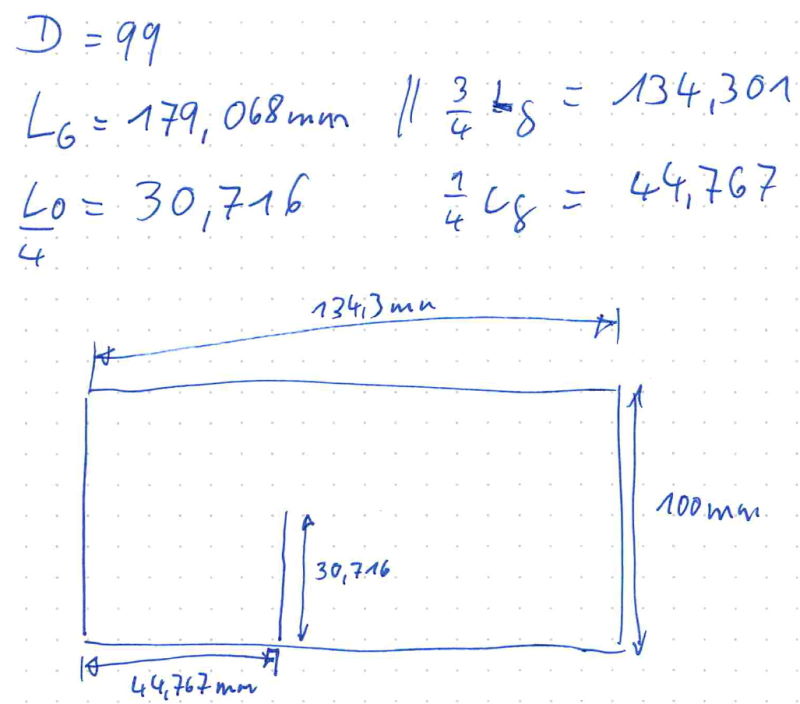 D = 99
LG = 179,068mm // 3/4 Lg = 134,301
L0/4 = 30,716 1/4 Lg = 44,767
134,3mm
100mm
30,716
44,767mm